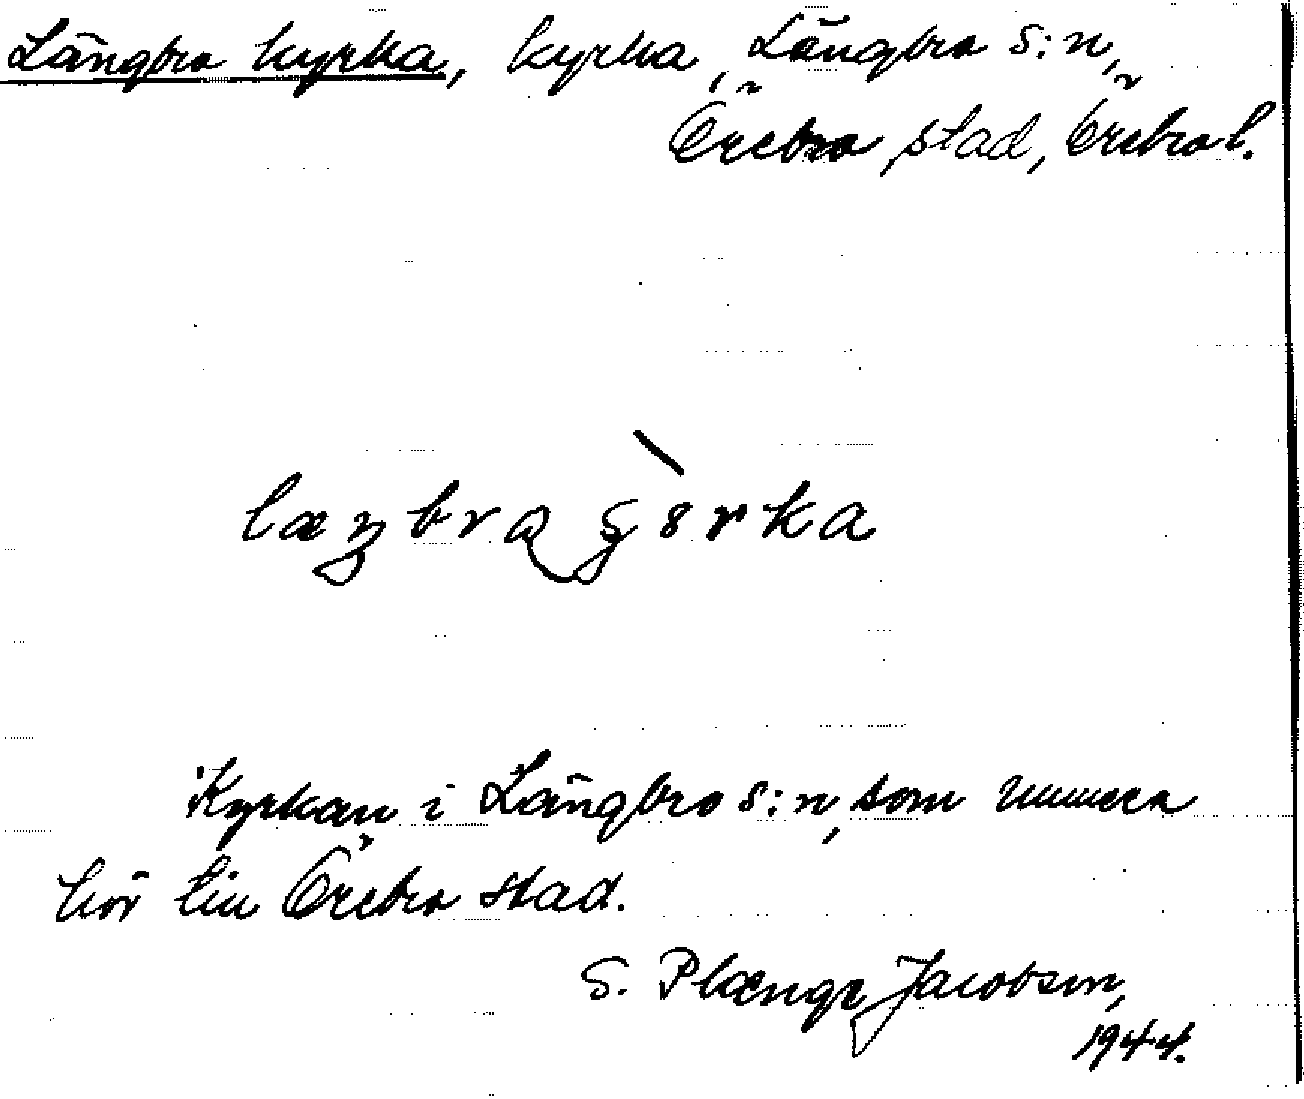 Längbro kyrka, kyrka, Längbro s:n,
Örebro stad, Örebro l.
Kyrkan i Längbro s:n, som numera
hör till Örebro stad.
S. Plænge Jacobson,
1944.